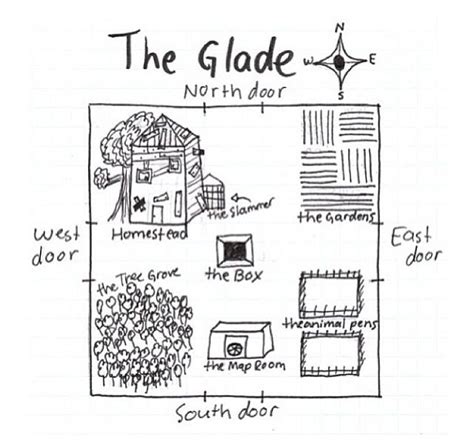 The Glade
N
W
E
S
North door
the Slammer
Homestead
the Gardens
West
door
East
door
the Box
the Tree Grove
the animal pens
the Map Room
South door